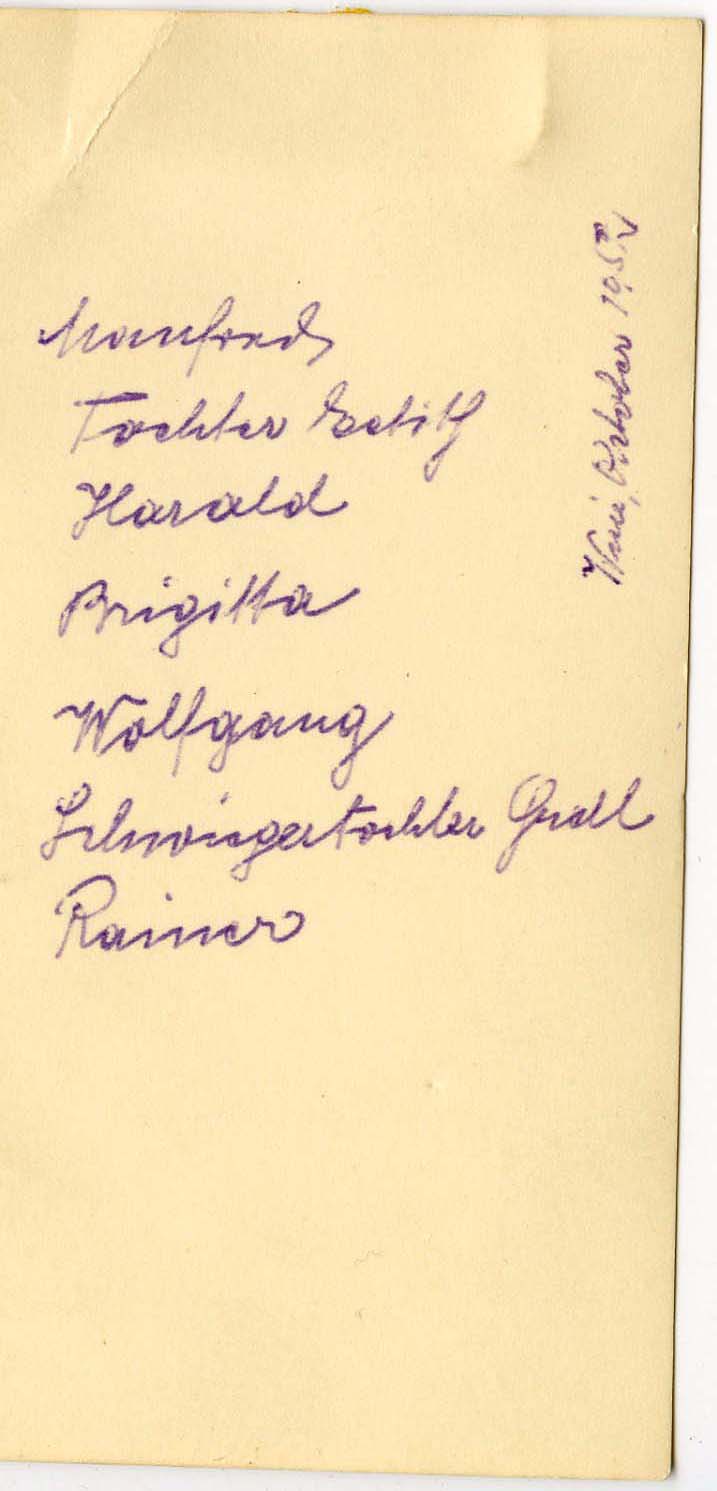 Manfred
Tochter Edith
Harald
Brigitta
Wolfgang
Schwiegertochter Gretl
Rainer
Oktober 195